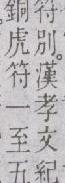 符別。漢孝文紀
銅虎符一至五